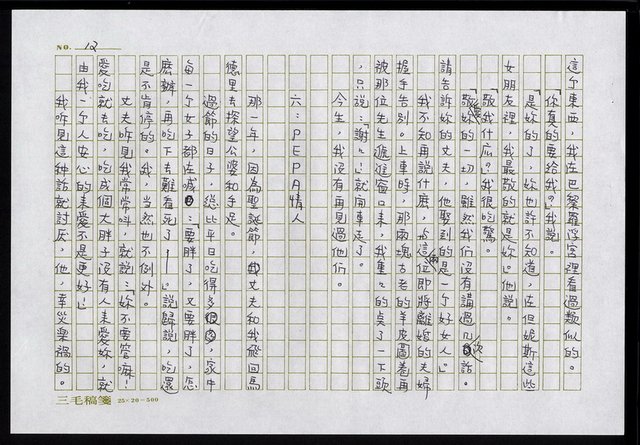 NO. 12
這個東西，我在巴黎羅浮宮裡看過類似的。
「你真的要給我？」我說。
「是妳的了，妳也許不知道，在但妮斯這些
女朋友裡，我最敬的就是妳。」他說。
「敬我什麼？」我很吃驚。
「敬妳的一切，雖然我們沒有講過幾次話。
請告訴妳的丈夫，他娶到的是一個好女人。」
我不知再說什麼，與這兩位即將離婚的夫婦
握手告別。上車時，那兩塊古老的羊皮圖卷再
被那位先生遞進窗口來，我重重的點了一下頭
，只說：「謝謝！」就開車走了。
今生，我沒有再見過他們。
六：PEPA情人
那一年，因為聖誕節，我丈夫和我飛回馬
德里去探望公婆和手足。
過節的日子，總比平日吃得多，家中
每一個女子都在喊：「要胖了，又要胖了，怎
麼辦，再吃下去難看死了——」說歸說，吃還
是不肯停的。我，當然也不例外。
丈夫听見我常常叫，就說：「妳不要管嘛！
愛吃就去吃，吃成個大胖子沒有人來愛妳，就
由我一個人安心的來愛不是更好！」
我听見這種話就討厭，他，幸災樂禍的。
三毛稿箋 25×20=500